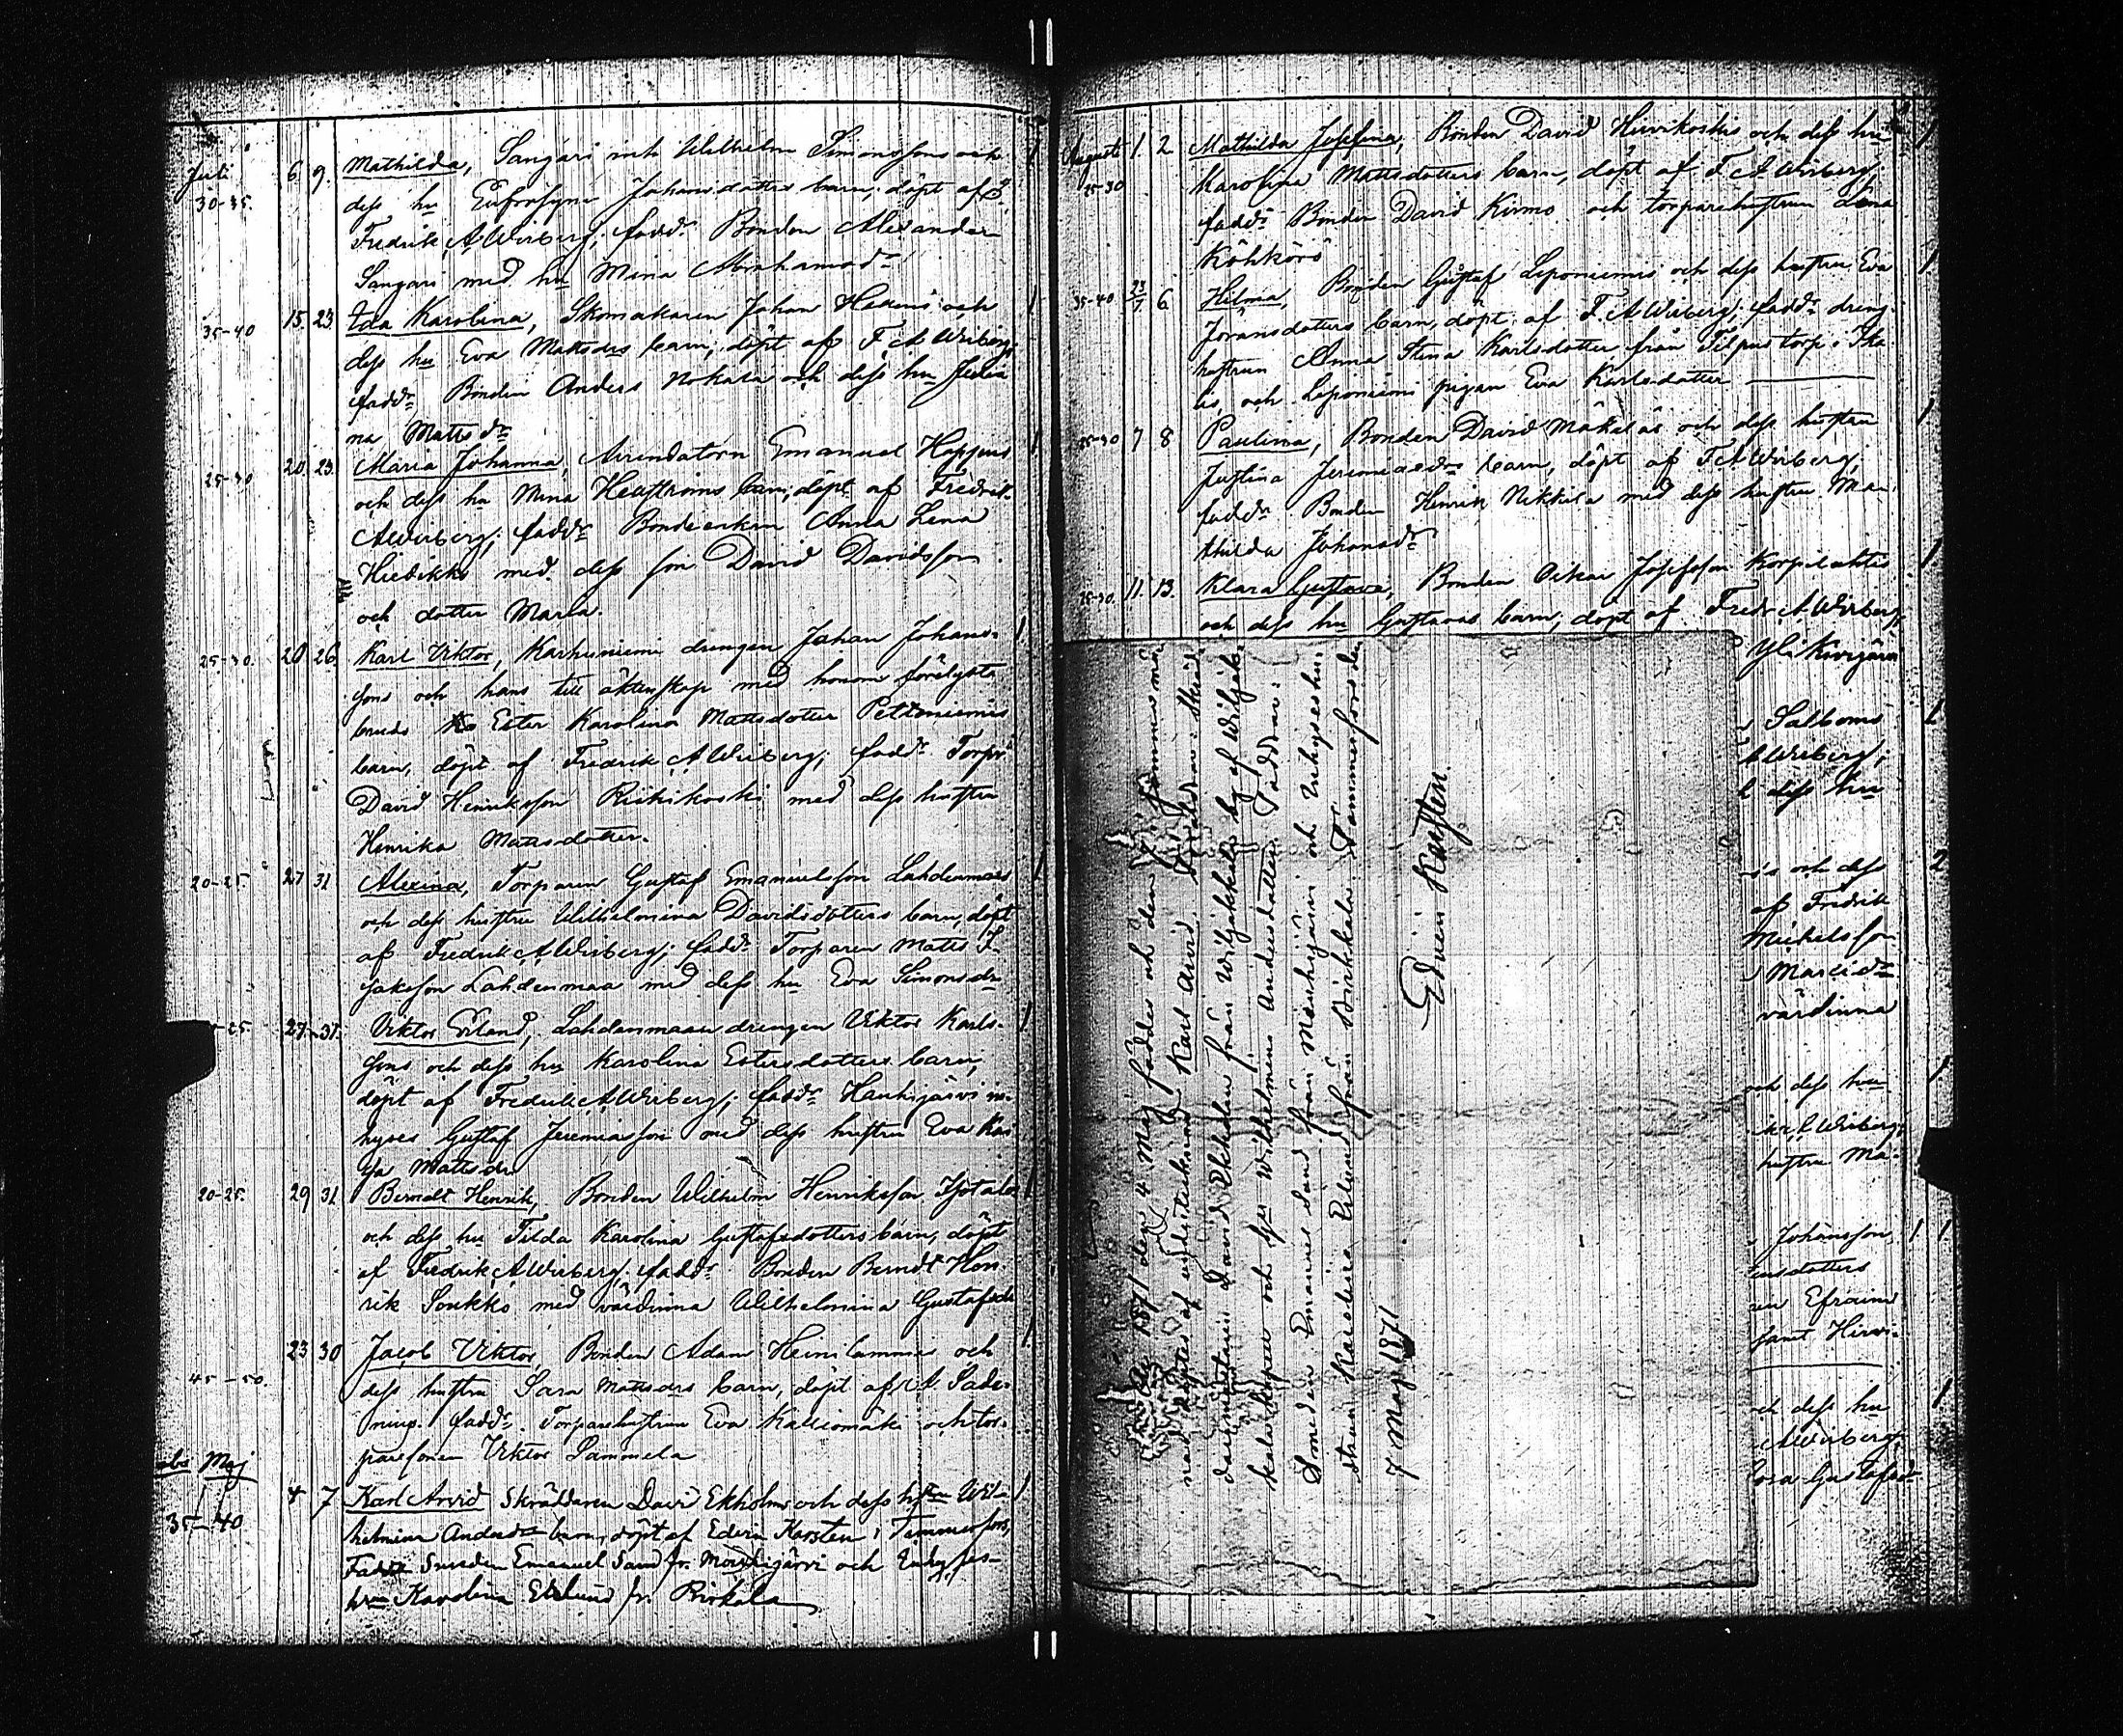 Juli 6. 9. Mathilda, Sangari inh Wilhelm Simonssons och
30-35. dess hu Eufrosyne Johansdotters barn; döpt af
Fredrik A Wirberg; faddr Bonden Alexander
Sangari med hu Mina Abrahamsdr
35-40 15. 23. Ida Karolina, Skomakaren Johan och
dess hu Eva Mattsdrs barn; döpt af F. A Wirberg;
faddr Bonden Anders Nokala och dess hu Julia
na Mattsdr
25-30 20. 23. Maria Johanna, Arrendatorn Emanuel
och dess hu Mina barn; döpt af Fredrik
A Wirberg; faddr Bondeenkan Anna Lena
med dess son David Davidsson
och dotter Maria.
25-30. 20 26 Karl Viktor, Karhuniemi drengen Johan Johans-
sons och hans till äktenskap med honom förelysta
bruds Ester Karolina Mattsdotter Peltoniemis
barn, döpt af Fredrik A Wirberg; faddr Torpr
David Henriksson med dess hustru
Henrika Mattsdotter.
20-25. 27 31 Alexina, Torparen Gustaf Emanuelsson Lahdenmaas
och dess hustru Wilhelmina Davidsdotters barn, döpt
af Fredrik A Wirberg; faddr Torparen Matts I-
saksson Lahdenmaa med dess hu Eva Simonsdr
-25. 27. 31. Viktor Erland, Lahdenmaan drengen Viktor Karls-
sons och dess hu Karolina Estersdotters barn;
döpt af Fredrik A Wirberg; faddr Hanhijärvi in-
hyses Gustaf Jeremiasson med dess hustru Eva Kai
sa Mattsdr
20-25. 29 31. Berndt Henrik, Bonden Wilhelm Henriksson Isotalos
och dess hu Tilda Karolina Gustafsdotters barn, döpt
af Fredrik A Wirberg; faddr Bonden Berndt Hen
rik Soukko med värdinna Wilhelmina Gustafsdr
23 30 Jacob Viktor, Bonden Adam Heinilammis och
45-50. dess hustru Sara Mattsdrs barn, döpt af A
faddr Torparehustrun Eva Kalliomäki och tor-
paresonen Viktor Sammela
Maj
4 7 Karl Arvid Skräddaren David Ekholms och dess hstru Wil-
35-40 helmina Andersdr barn, döpt af Edvin Karsten i Tammerfors,
Faddr Smeden Emanuel Sand fr. Mouhijärvi och Inhyses-
hrn Karolina Eklund fr. Birkala
Augusti 1. 2 Mathilda Josefina, Bonden David Hirvikoskis och dess hu
25-30 Karolina Mattsdotters barn, döpt af F A Wirberg;
faddr Bonden David Kirmo och torparehustrun Lena
Köhkörö
35-40 23/7 6 Hilma, Bonden Gustaf Leponiemis och dess hustru Eva
Joransdotters barn, döpt af F. A Wirberg; faddr dreng-
hustrun Anna Stina Karlsdotter från torp i Ika-
lis, och Leponiemi pigan Eva Karlsdotter
25-30 7 8 Paulina, Bonden David Mäkeläs och dess hustru
Justina Jeremiasdrs barn, döpt af F A Wirberg;
faddr Bonden Henrik Nikkilä med dess hustru Ma-
thilda Johansdr
25-30. 11. 13. Klara Gustava, Bonden Oskar Josefsson Korpilahtis
och dess hu Gustavas barn, döpt af Fredr A. Wirberg,
Yli Kovijärvi
Saltoms
A Wirberg;
dess hu
och dess
af Fredrik
Michelsson,
värdinna
och dess hu
A Wirberg;
hustru Ma-
Johansson,
dotters
Efraim
samt Hirvi-
och dess hu
A Wirberg;
Gustafsdr
År 1871 den 4 Maj föddes och den 7 samma må-
nad döptes af undertecknad Karl Arvid. Föräldrar: Skräd-
daremästaren David Ekholm från Wiljakkala by af Wiljak-
kala kapell och hu Wilhelmina Andersdotter. Faddrar:
Smeden Emanuel Sand från Mouhijärvi och Inhyseshu-
strun Karolina Eklund från Birkkala. Tammerfors den
7 Maj 1871.
Edvin Karsten.